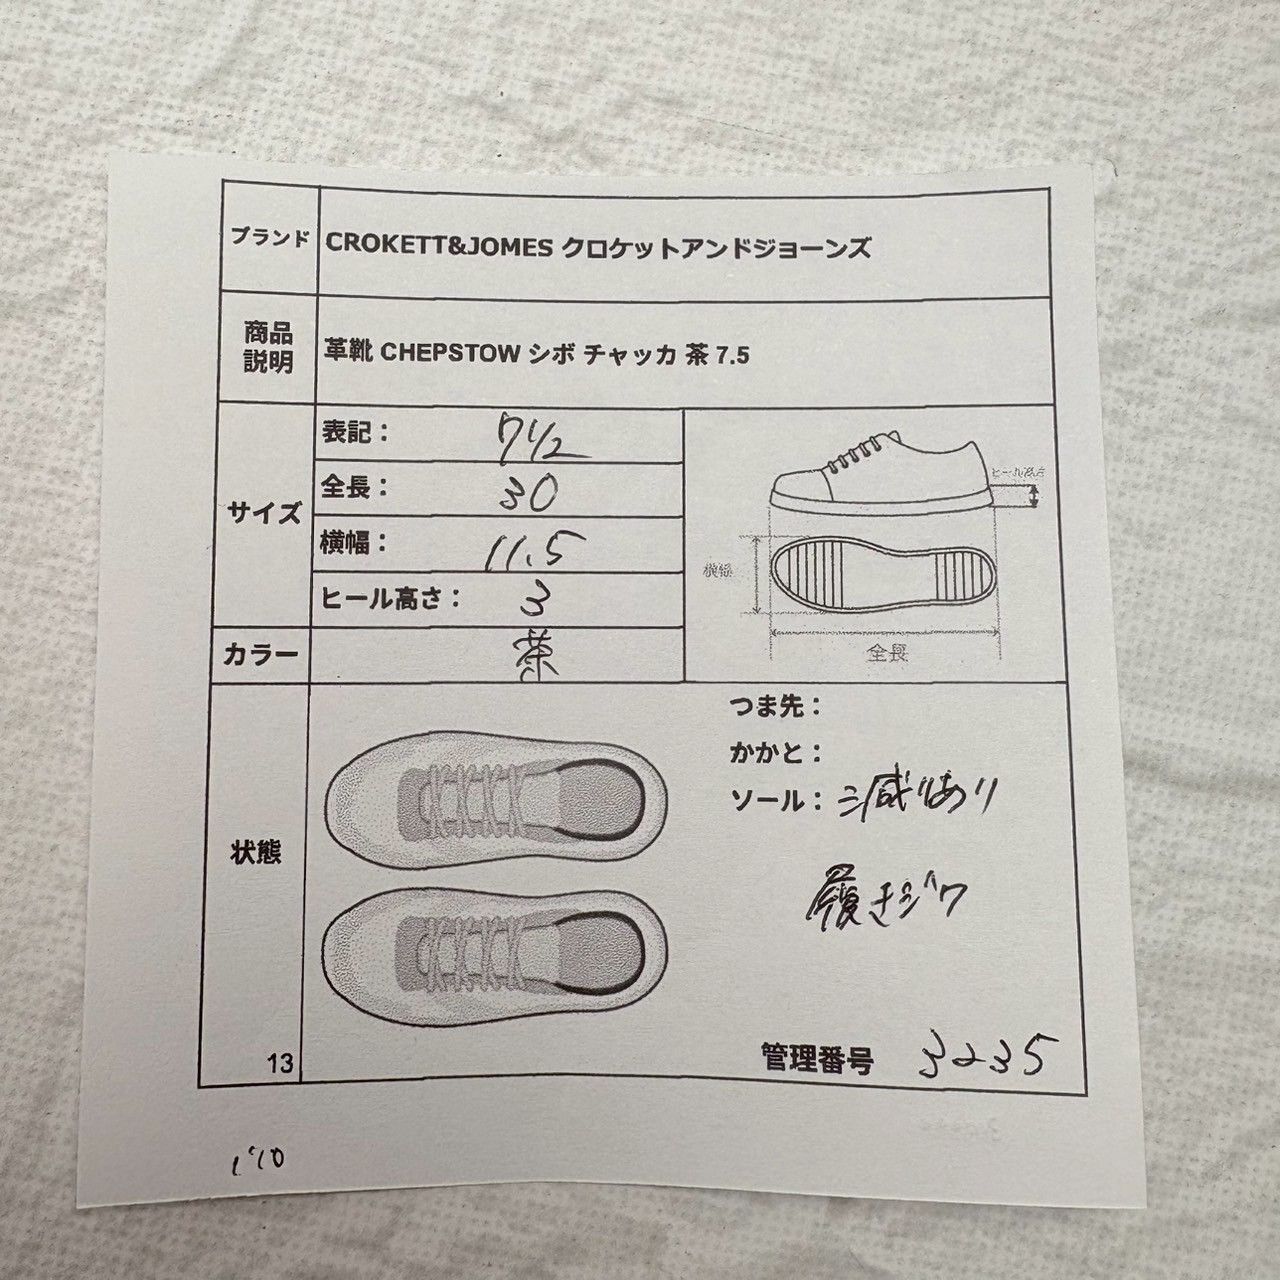 ブランド CROKETT&JOMES クロケットアンドジョーンズ
商品説明 革靴 CHEPSTOW シボ チャッカ 茶 7.5
サイズ
表記： 7 1/2
全長： 30
横幅： 11.5
ヒール高さ： 3
ヒール高さ
横幅
全長
カラー 茶
状態
つま先：
かかと：
ソール： 減りあり
履きジワ
13
管理番号 3235